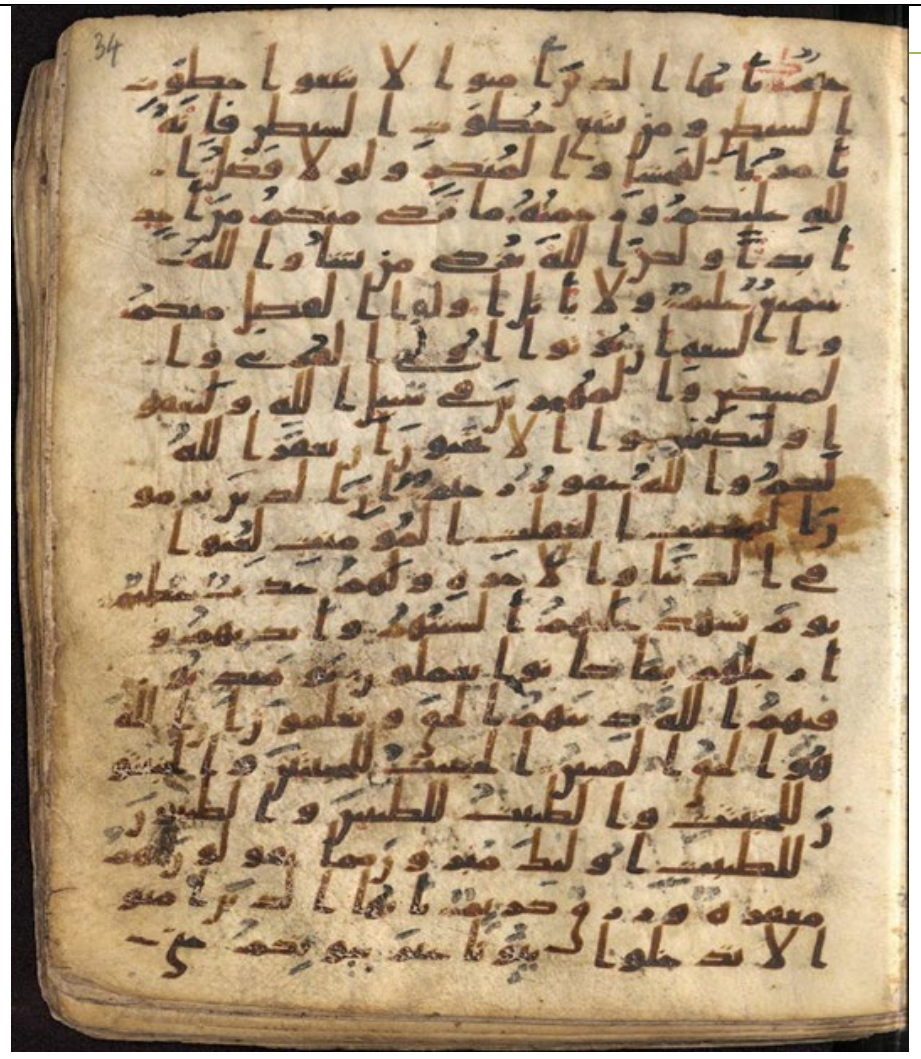 34
حيم يايها الذين امنوا لا تتبعوا خطوت
الشيطن ومن يتبع خطوت الشيطن فانه
يامر بالفحشا والمنكر ولولا فضل ا
لله عليكم ورحمته ما زكى منكم من احد
ابدا ولكن الله يزكى من يشا والله
سميع عليم ولا ياتل اولوا الفضل منكم
والسعة ان يوتوا اولى القربى وا
لمسكين والمهجرين فى سبيل الله وليعفو
ا وليصفحوا الا تحبون ان يغفر الله
لكم والله غفور رحيم ان الذين يرمو
ن المحصنت الغفلت المومنت لعنوا
فى الدنيا والاخرة ولهم عذاب عظيم
يوم تشهد عليهم السنتهم وايديهم و
ارجلهم بما كانوا يعملون يومئذ يو
فيهم الله دينهم الحق ويعلمون ان الله
هو الحق المبين الخبيثت للخبيثين والخبيثو
ن للخبيثت والطيبت للطيبين والطيبون
للطيبت اولئك مبرون مما يقولون لهم
مغفرة ورزق كريم يايها الذين امنو
ا لا تدخلوا بيوتا غير بيوتكم